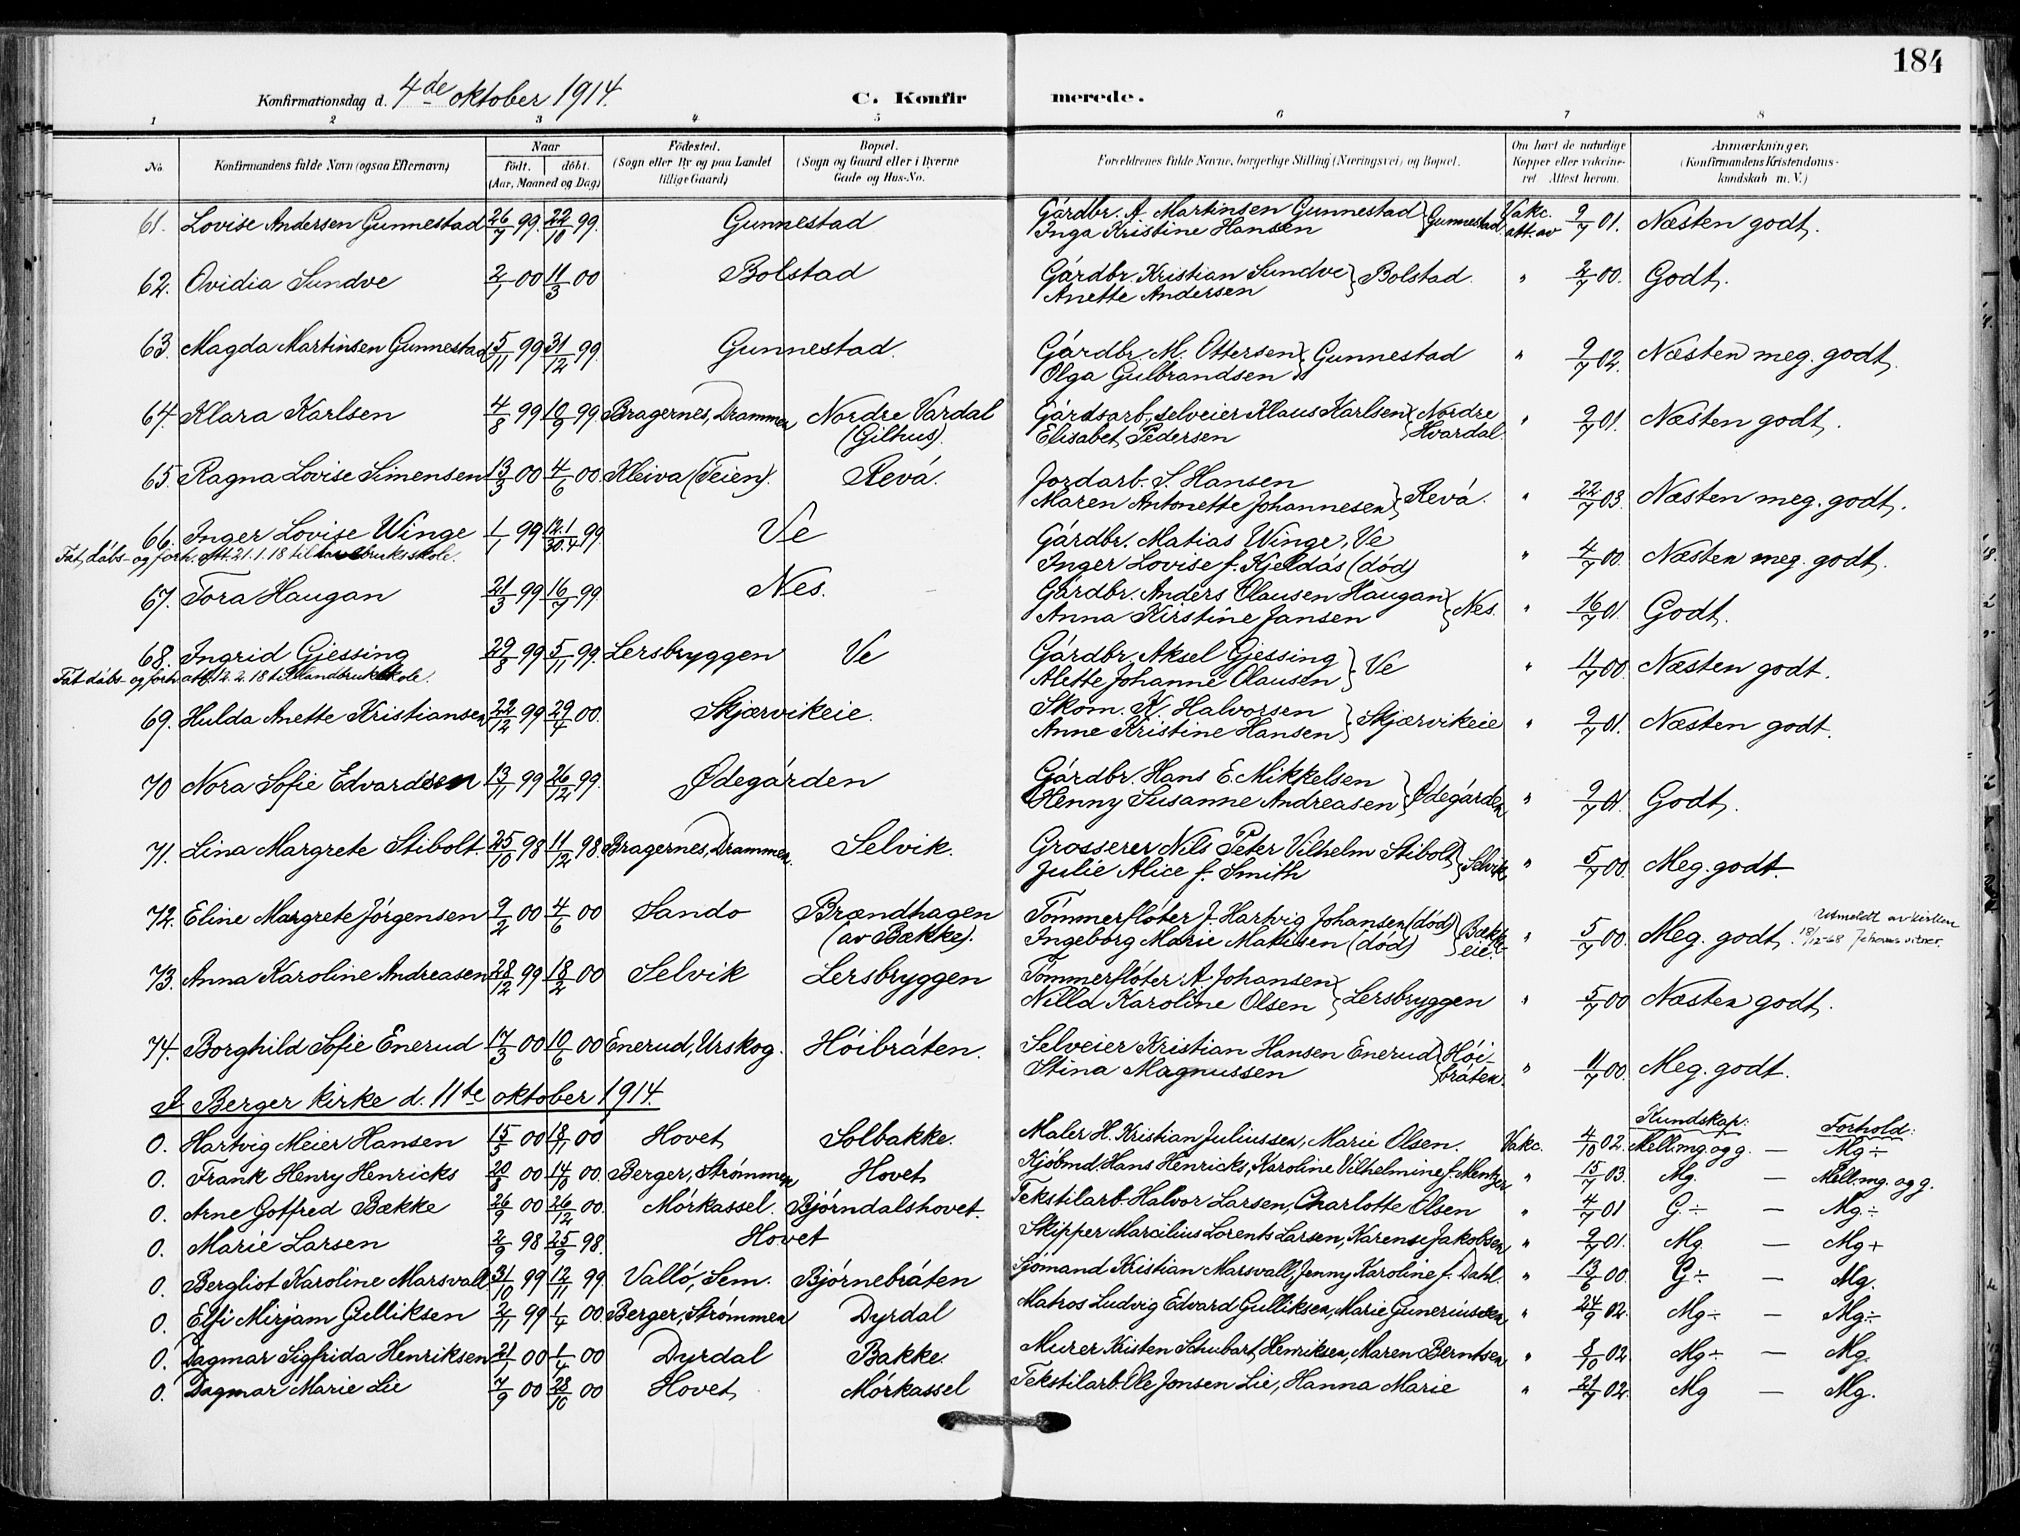 184
Konfirmationsdag d. 4de oktober 1914.
C. Konfirmerede.
1 2 3 4 5 6 7 8
No.
Konfirmandens fulde Navn (ogsaa Efternavn)
Naar
født. døbt.
(Aar, Maaned og Dag)
Fødested.
(Sogn eller By og paa Landet
tillige Gaard)
Bopæl.
(Sogn og Gaard eller i Byerne
Gade og Hus-No.
Forældrenes fulde Navne, borgerlige Stilling (Næringsvei) og Bopæl.
Om havt de naturlige
Kopper eller vakcine-
ret Attest herom.
Anmærkninger,
(Konfirmandens Kristendoms-
kundskab m. V.)
61. Lovise Andersen Gunnestad 26/7 99 22/10 99. Gunnestad Gårdbr. A. Martinsen Gunnestad } Gunnestad. Vakc. 9/7 01. Næsten godt.
Inga Kristine Hansen att. av
62. Ovidia Sundve 2/1 00 11/3 00 Bolstad Gårdbr. Kristian Sundve } Bolstad. " 2/7 00. Godt.
Anette Andersen
63. Magda Martinsen Gunnestad 5/11 99 31/12 99. Gunnestad. Gårdbr. M. Ottersen } Gunnestad " 9/7 02. Næsten meg. godt.
Olga Gulbrandsen
64. Klara Karlsen 4/8 99 10/9 99. Bragernes, Drammen Nordre Vardal Gårdsarb., selveier Klaus Karlsen } Nordre " 9/7 01. Næsten godt.
(Gilhus). Elisabet Pedersen Hvardal.
65. Ragna Lovise Simensen 13/3 00 4/6 00. Kleiva (Teien). Revå. Jordarb. S. Hansen
Maren Antonette Johannesen } Revå. " 22/7 03. Næsten meg. godt.
66. Inger Lovise Winge 1/1 99 12.1/30.4 99. Ve Gårdbr. Matias Winge, Ve
Fåt dåbs- og forh. att. 21.1.18 til landbruksskole. Inger Lovise f. Kjeldås (död) " 4/7 00. Næsten meg. godt.
67. Tora Haugan 21/3 99 16/7 99. Nes. Gårdbr. Anders Olausen Haugan } Nes. " 16/7 01. Godt.
Anna Kirstine Jansen
68. Ingrid Gjessing 29/8 99 5/11 99. Lersbryggen Ve Gårdbr. Aksel Gjessing } Ve " 11/7 00. Næsten godt.
Fåt dåbs- og forh. att. 12.2.18 til landbruksskole. Alette Johanne Olausen
69. Hulda Anette Kristiansen 22/12 99 29/4 00. Skjærvikeie. Skom. K. Halvorsen } Skjærvikeie " 9/7 01. Næsten godt.
Anne Kristine Hansen
70 Nora Sofie Edvardsen 13/11 99 26/12 99. Ødegården Gårdbr. Hans E. Mikkelsen } Ødegården " 9/7 01. Godt.
Henny Susanne Andreasen
71. Lina Margrete Stibolt 25/10 98 11/12 98. Bragernes, Drammen. Selvik. Grosserer Nils Peter Vilhelm Stibolt } Selvik " 5/7 00. Meg. godt.
Julie Alice f. Smith
72. Eline Margrete Jörgensen 9/2 00 4/6 00 Sando Brændhagen Tömmerflöter J. Hartvig Johansen (död) } Bække- " 5/7 00. Meg. godt. Utmeldt av kirken
(av Bække). Ingeborg Marie Matisen (död) eie. 18/12-68 Jehovas vitner.
73. Anna Karoline Andreasen 28/12 99 18/2 00 Selvik Lersbryggen Tömmerflöter A. Johansen } Lersbryggen " 5/7 00 Næsten godt.
Nilla Karoline Olsen
74. Borghild Sofie Enerud 17/3 00 10/6 00 Enerud, Urskog. Höibråten. Selveier Kristian Hansen Enerud } Höi- " 11/7 00. Meg. godt.
Stina Magnussen bråten.
I Berger kirke d. 11te oktober 1914.
Kundskap: Forhold:
0. Hartvig Meier Hansen 15/5 00 18/11 00 Hovet Solbakke. Maler H. Kristian Juliussen, Marie Olsen. Vakc. 4/10 02. Mell. mg. og g. — Mg÷
0. Frank Henry Henricks 20/8 00 14/10 00. Berger, Strømmen Hovet Kjöbmd. Hans Henricks, Karoline Vilhelmine f. Mentzer " 15/7 03. Mg. — Mell. mg. og g.
0. Arne Gotfred Bække 26/9 00 26/12 00. Mörkassel. Björndalshovet. Tekstilarb. Halvor Larsen, Charlotte Olsen " 4/7 01 G÷ — Mg÷
0. Marie Larsen 2/9 98 25/9 98. Hovet Skipper Marcilius Lorents Larsen, Narense Jakobsen " 9/7 01. Mg. — Mg+
0. Bergliot Karoline Marsvall 31/10 99 12/11 99 Vallö, Sem. Björnebråten Sjömand Kristian Marsvall, Jenny Karoline f. Dahl. " 13/6 00. G÷ — Mg.
0. Elfi Mirjam Gulliksen 2/11 99 1/4 00. Berger, Strømmen Dyrdal Matros Ludvig Edvard Gulliksen, Marie Guneriussen " 24/9 02. Mg÷ — Mg÷
0. Dagmar Sigfrida Henriksen 21/1 00 1/4 00 Dyrdal Bakke. Murer Kristen Schubart Henriksen, Maren Berntsen " 8/10 02 Mg÷ — Mg.
0. Dagmar Marie Lie 7/9 00 28/10 00 Hovet Mörkassel Tekstilarb. Ole Jonsen Lie, Hanna Marie " 21/7 02. Mg — Mg.